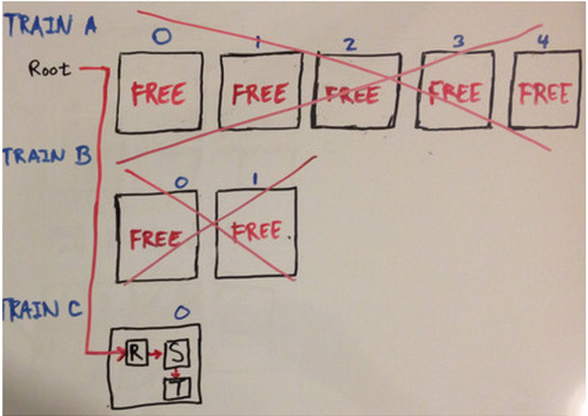 TRAIN A
0 1 2 3 4
Root
FREE FREE FREE FREE FREE
TRAIN B
0 1
FREE FREE
TRAIN C
0
R S
T